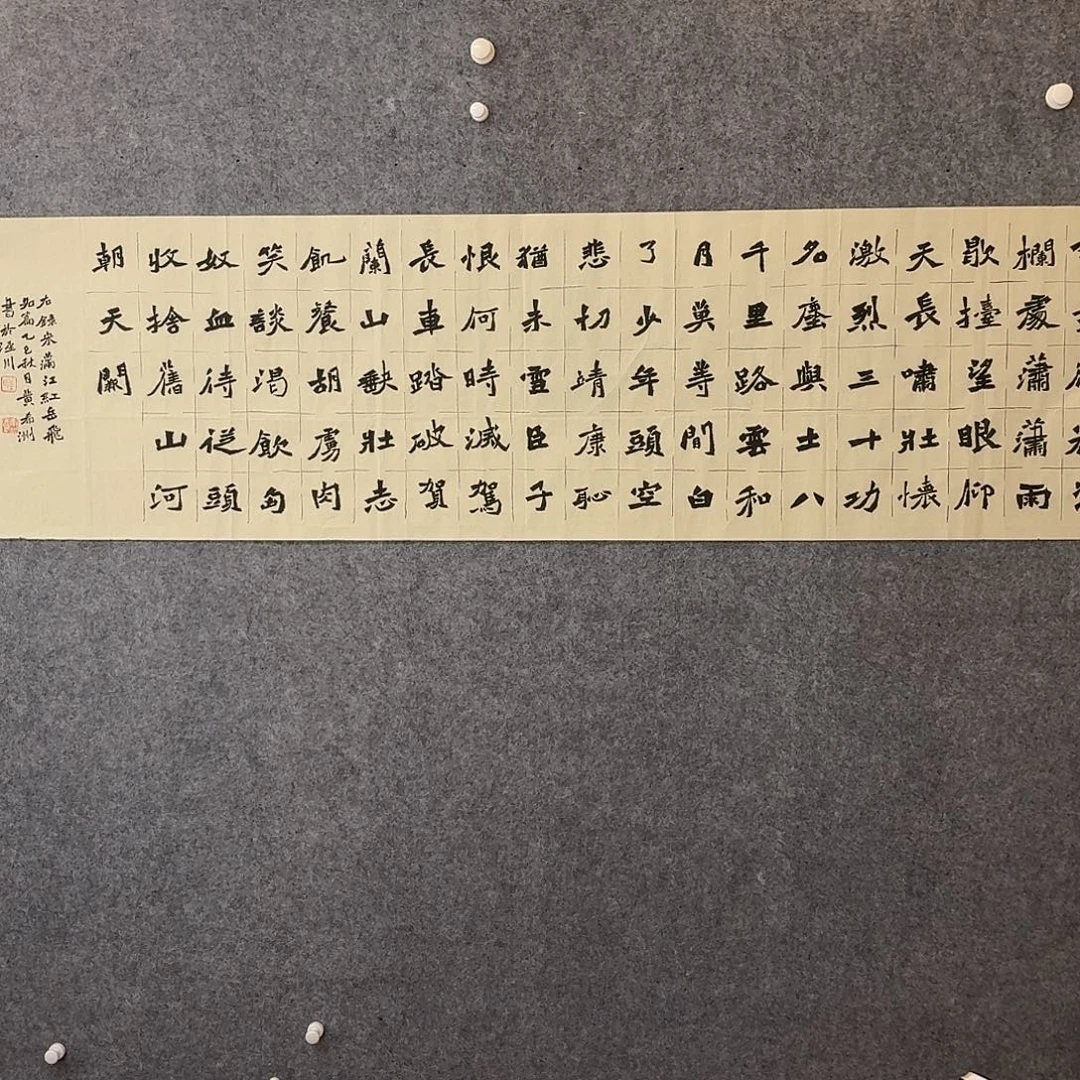 欄處瀟瀟雨
歇擡望眼仰
天長嘯壯懷
激烈三十功
名塵與土八
千里路雲和
月莫等間白
了少年頭空
悲切靖康恥
猶未雪臣子
恨何時滅駕
長車踏破賀
蘭山缺壯志
飢餐胡虜肉
笑談渴飲匈
奴血待從頭
收捨舊山河
朝天闕
右錄宋滿江紅岳飛
篇乙巳秋月黃希洲
書於川